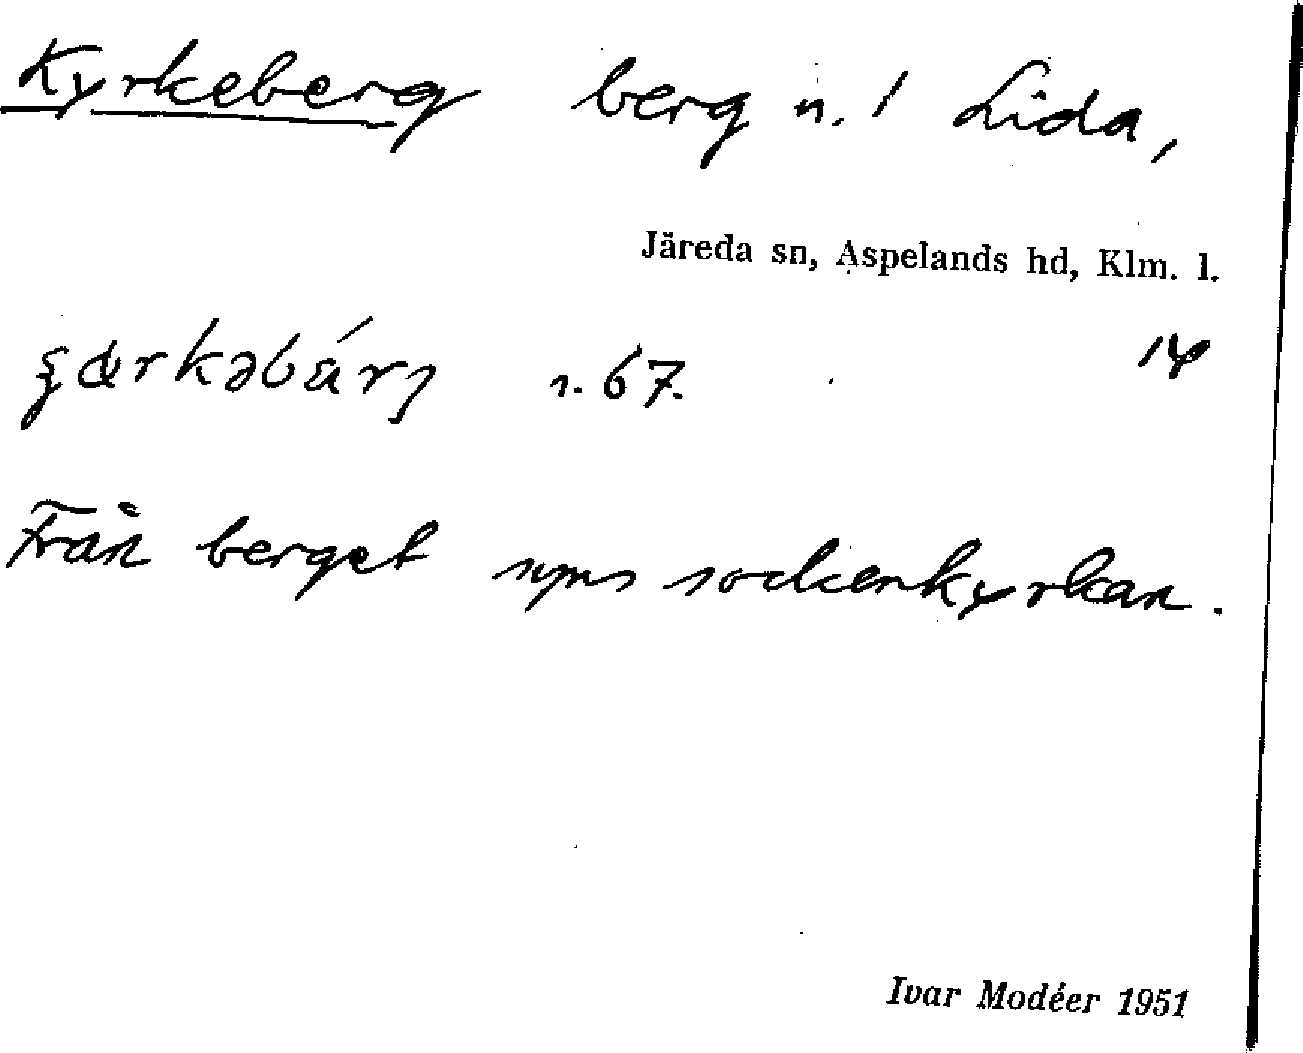 Kyrkeberg berg n. / Lida,
Järeda sn, Aspelands hd, Klm. l.
s. 67. 14
Från berget syns sockenkyrkan.
Ivar Modéer 1951